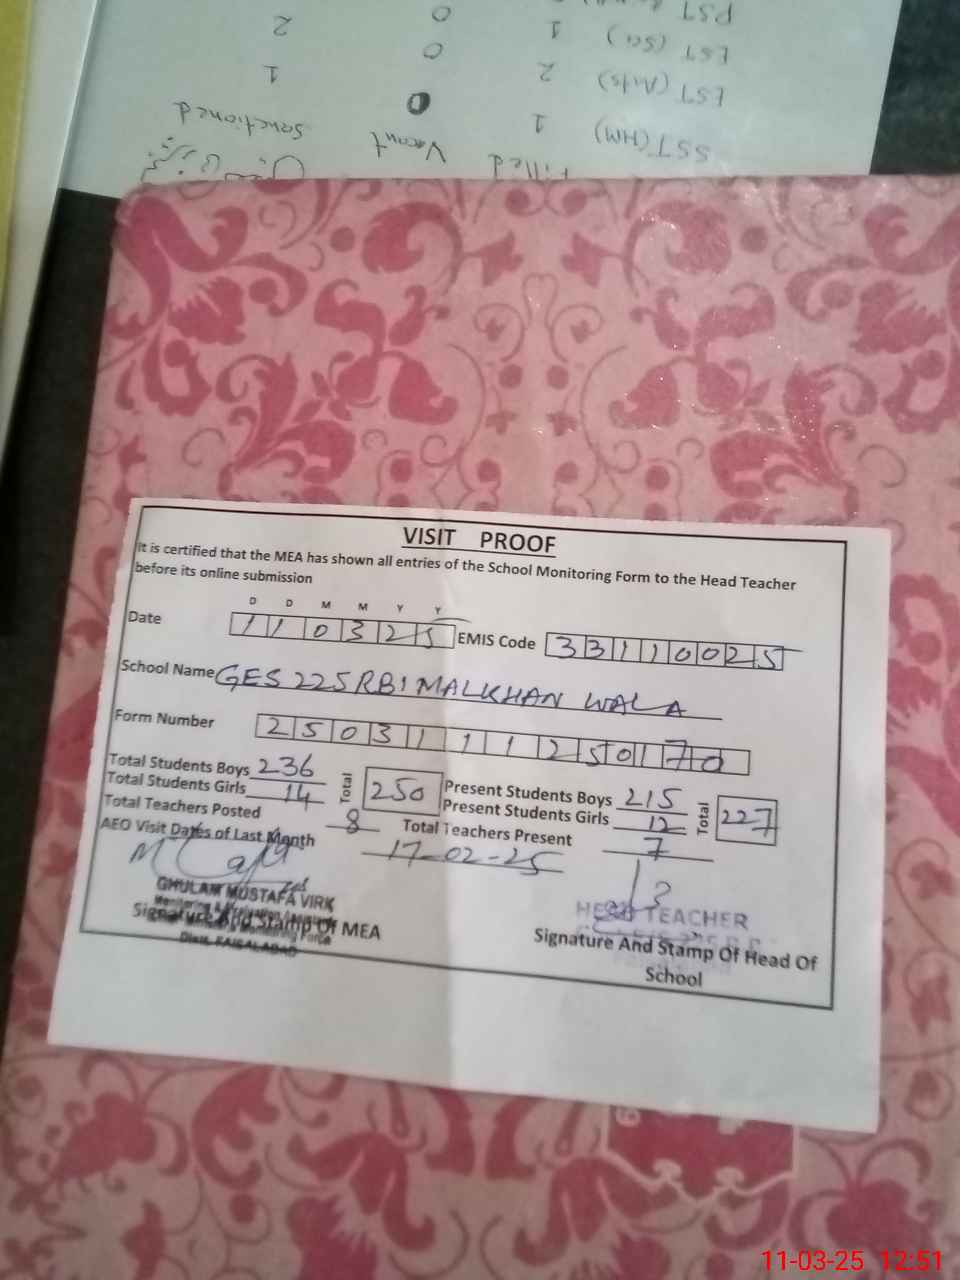 PST
EST (Sci) 1 0 2
EST (Arts) 2 0 1
SST (HM) 1 0
Filled Vacant Sanctioned
VISIT PROOF
It is certified that the MEA has shown all entries of the School Monitoring Form to the Head Teacher
before its online submission
D D M M Y Y
Date 1 1 0 3 2 5 EMIS Code 3 3 1 1 0 0 2 5
School Name GES 225 RB1 MALKHAN WALA
Form Number 2 5 0 3 1 1 1 2 5 0 1 7 0
Total Students Boys 236 Total 250 Present Students Boys 215 Total 227
Total Students Girls 14 Present Students Girls 12
Total Teachers Posted 8 Total Teachers Present 7
AEO Visit Dates of Last Month 17-02-25
GHULAM MUSTAFA VIRK
Signature And Stamp Of MEA
Distt. FAISALABAD
HEAD TEACHER
Signature And Stamp Of Head Of
School
11-03-25 12:51